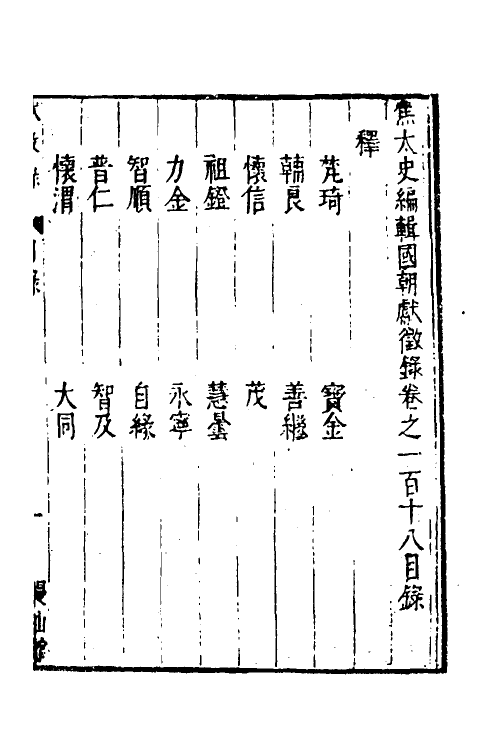 焦太史編輯國朝獻徵錄卷之一百十八目錄
釋
梵琦　寶金
輔良　善繼
懷信　茂
祖鐙　慧曇
力金　永寧
智順　自緣
普仁　智及
懷渭　大同
一